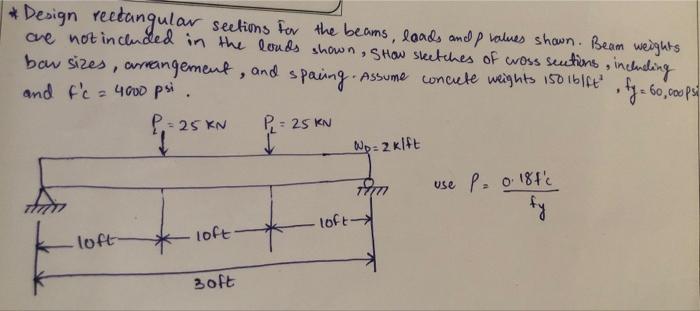 * Design rectangular sections for the beams, loads and ρ values shown. Beam weights
are not included in the loads shown, Show sketches of cross sections, including
bar sizes, arrangement, and spacing. Assume concrete weights 150 lb/ft³, fy = 60,000 psi
and f'c = 4000 psi.
PL = 25 KN PL = 25 KN
WD = 2 k/ft
use ρ = 0.18f'c / fy
10ft 10ft 10ft
30ft